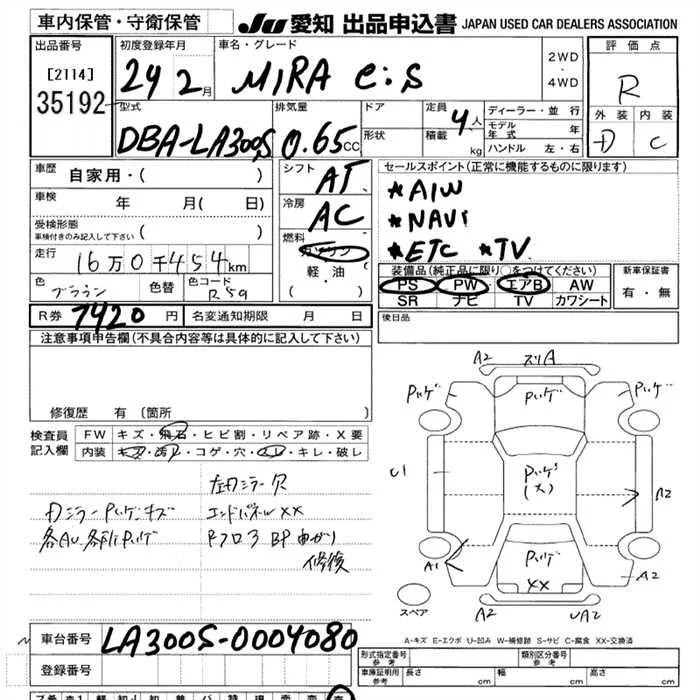 車内保管・守衛保管
JU 愛知 出品申込書 JAPAN USED CAR DEALERS ASSOCIATION
出品番号
[2114]
35192
初度登録年月
24 2月
車名・グレード
MIRA e:s
2WD
・
4WD
評価点
R
外装 内装
D C
型式
DBA-LA300S
排気量
0.65cc
ドア
形状
定員 4人
積載 kg
ディーラー・並行
モデル年式 年
ハンドル 左・右
車歴
自家用・( )
車検
年 月( 日)
受検形態
車検付きのみ記入して下さい ( )
走行
16万0千454km
色
ブラウン
色替
色コード
R59
シフト
AT
冷房
AC
燃料
ガソリン
軽・油
・( )
セールスポイント(正常に機能するものに限ります)
*A/W
*NAVI
*ETC *TV
装備品(純正品に限り○をつけてください)
PS PW エアB AW
SR ナビ TV カワシート
新車保証書
有・無
R券 7420円
名変通知期限 月 日
後日品
注意事項申告欄(不具合内容等は具体的に記入して下さい)
修復歴 有(箇所
検査員
記入欄
FW キズ・飛石・ヒビ割・リペア跡・X要
内装 キズ・汚レ・コゲ・穴・スレ・キレ・破レ
左ドミラー欠
エンドパネルXX
修復
A2 スリA
U1
A2
A1
A2
XX
A2 UA2
スペア
A-キズ E-エクボ U-凹み W-補修跡 S-サビ C-腐食 XX-交換済
車台番号 LA300S-0004080
登録番号
形式指定番号
参考
類別区分番号
参考
車庫証明用
参考
長さ cm 幅 cm 高さ cm